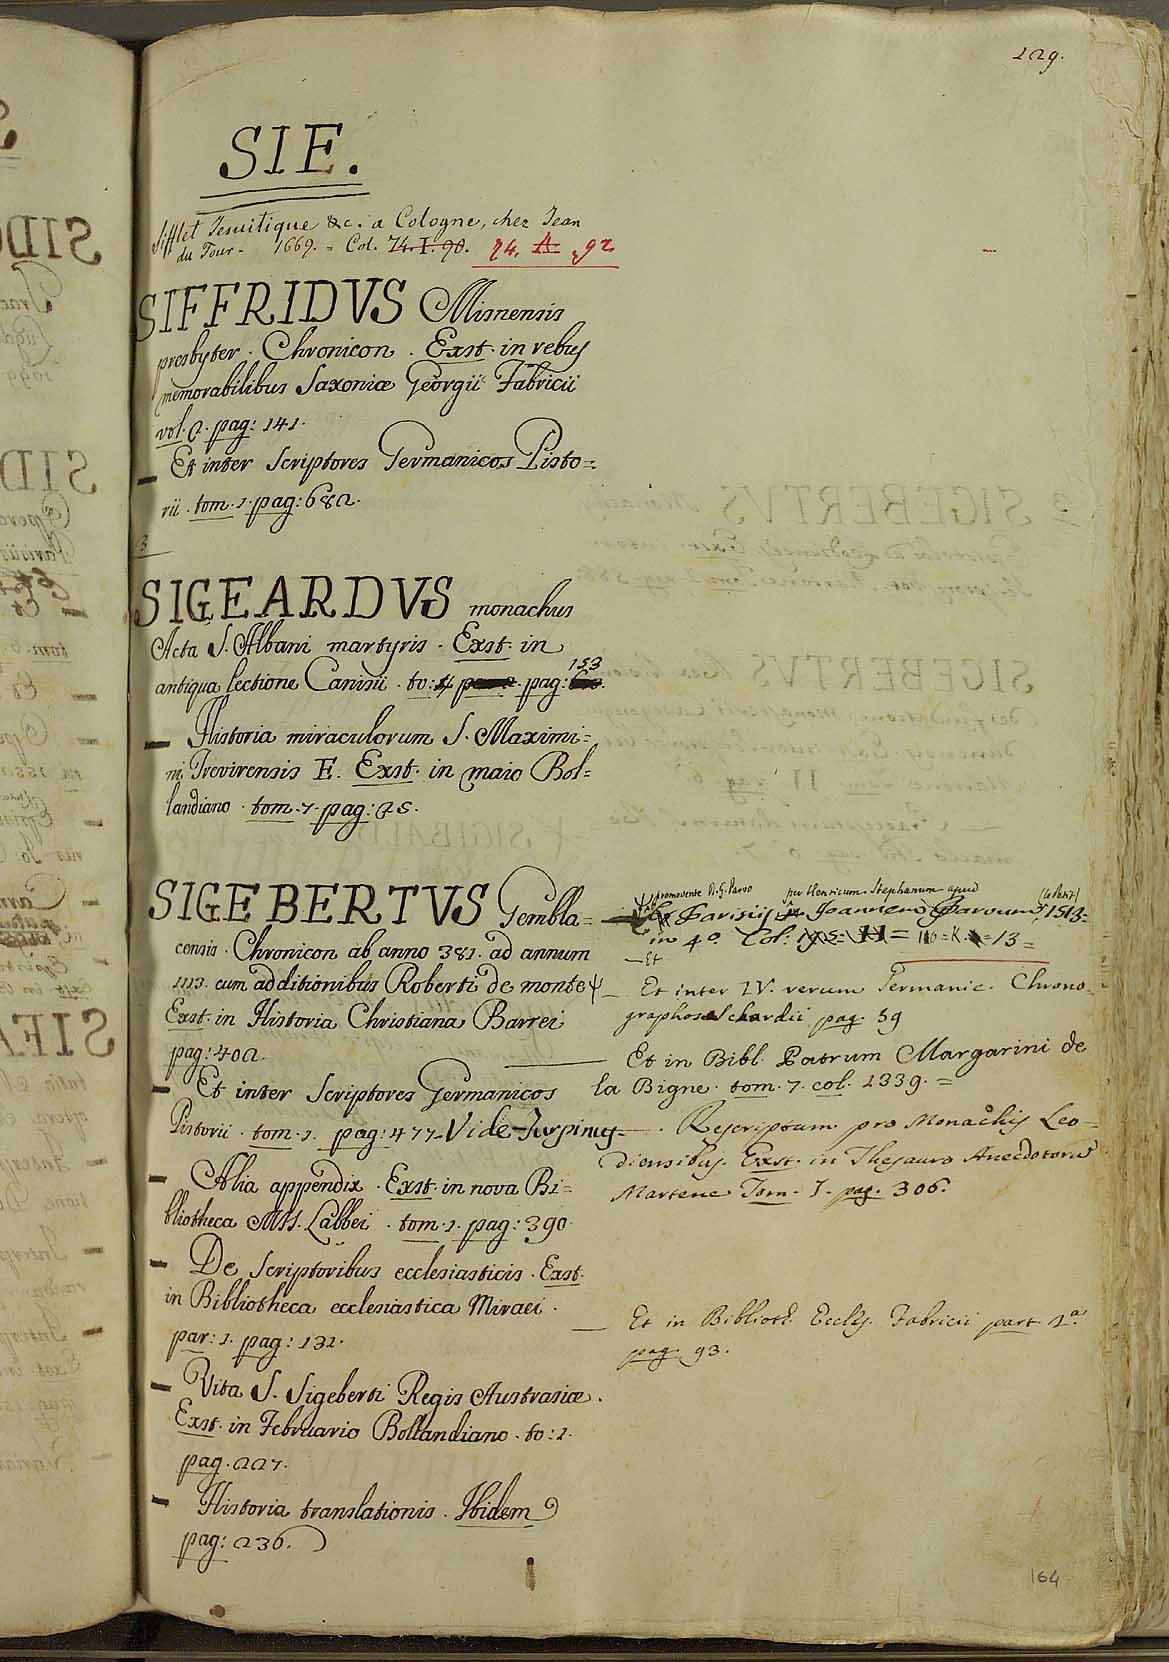 129.
SIE.
Sifflet Jesuitique &c. a Cologne, chez Jean
du Four - 1669. = Col. 74. I. 90. 74. A. 92
SIFFRIDVS Misnensis
presbyter. Chronicon. Exst. in rebus
memorabilibus Saxoniæ Georgii Fabricii
vol. 2. pag: 141.
Et inter Scriptores Germanicos Pisto=
rii. tom. 1. pag: 682.
SIGEARDVS monachus
Acta S. Albani martyris. Exst. in
antiqua lectione Canisii. to: 4 pag: 153
— Historia miraculorum S. Maximi=
ni Trevirensis E. Exst. in maio Bol=
landiano. tom. 7. pag: 25.
SIGEBERTVS Gembla=
censis. Chronicon ab anno 381. ad annum
1113. cum additionibus Roberti de monte ψ
Exst. in Historia Christiana Barrei
pag: 402.
— Et inter Scriptores Germanicos
Pistorii. tom. 1. pag: 477. Vide Turpinus
— Alia appendix. Exst. in nova Bi=
bliotheca MSS. Labbei. tom. 1. pag: 390.
— De Scriptoribus ecclesiasticis. Exst.
in Bibliotheca ecclesiastica Miraei.
par: 1. pag: 131.
— Vita S. Sigeberti Regis Austrasiæ.
Exst. in Februario Bollandiano. to: 1.
pag. 227.
— Historia translationis. Ibidem
pag: 236.
ψ promovente G. Parvo per Henricum Stephanum apud
Parisiis Joannem Parvum, 1513=
in 4º. Col: = K. = 13 =
— Et
— Et inter IV. rerum Germanic. Chrono=
graphos Schardii pag. 59
— Et in Bibl. Patrum Margarini de
la Bigne. tom. 7. col. 1339. =
— . Rescriptum pro Monachis Leo=
diensibus. Exst. in Thesauro Anecdotorum
Martene Tom. I. pag. 306.
— Et in Biblioth. Eccles. Fabricii part. 1ª.
pag. 93.
164